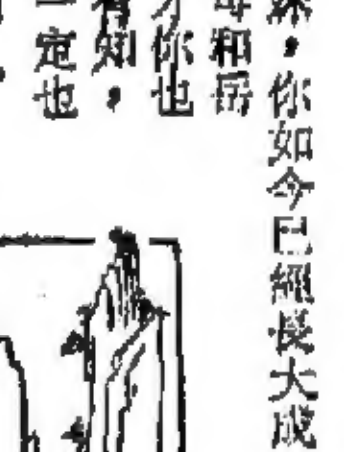 ，你如今已經長大成
母和岳
你也
有知，
一定也